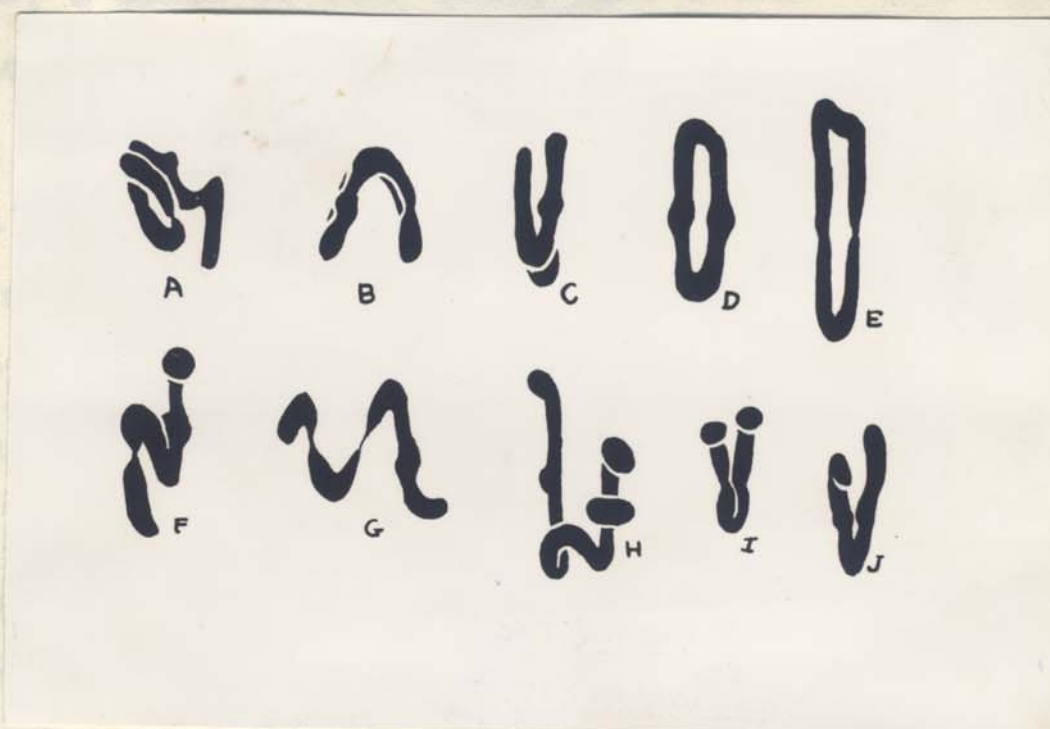 A B C D E
F G H I J